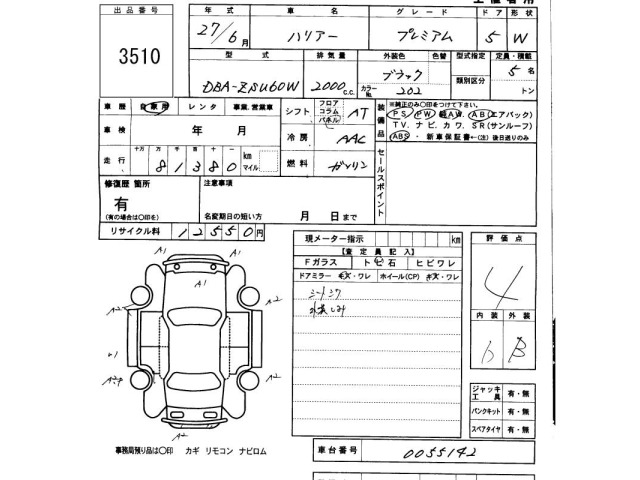 出品番号
3510
年式 車名 グレード ドア 形状
27/6月 ハリアー プレミアム 5 W
型式 排気量 外装色 色替 型式指定 定員・積載
DBA-ZSU60W 2000c.c. ブラック カラーNo. 202 類別区分 5名 トン
車歴 自家用 レンタ 事業、営業車
車検 年 月
走行 十万 万 千 百 十
81380 km マイル
シフト フロア コラム パネル AT
冷房 AAC
燃料 ガソリン
装備品
※純正のみ○印をつけて下さい。
PS PW AW、AB(エアバック)
TV、ナビ、カワ、SR(サンルーフ)
ABS・新車保証書←(注)後日送りのみ
セールスポイント
修復歴 箇所
有
(有の場合は○印を)
注意事項
名変期日の短い方 月 日まで
リサイクル料 12550円
現メーター指示 km
【査定員記入】
Fガラス トビ石 ヒビワレ
ドアミラー キズ・ワレ ホイール(CP) キズ・ワレ
シートシワ
評価点
4
内装 外装
B
A1 A1
A1
A2 A2
A2
A2
ジャッキ 工具 有・無
パンクキット 有・無
スペアタイヤ 有・無
事務局預り品は○印 カギ リモコン ナビロム
車台番号 0055142